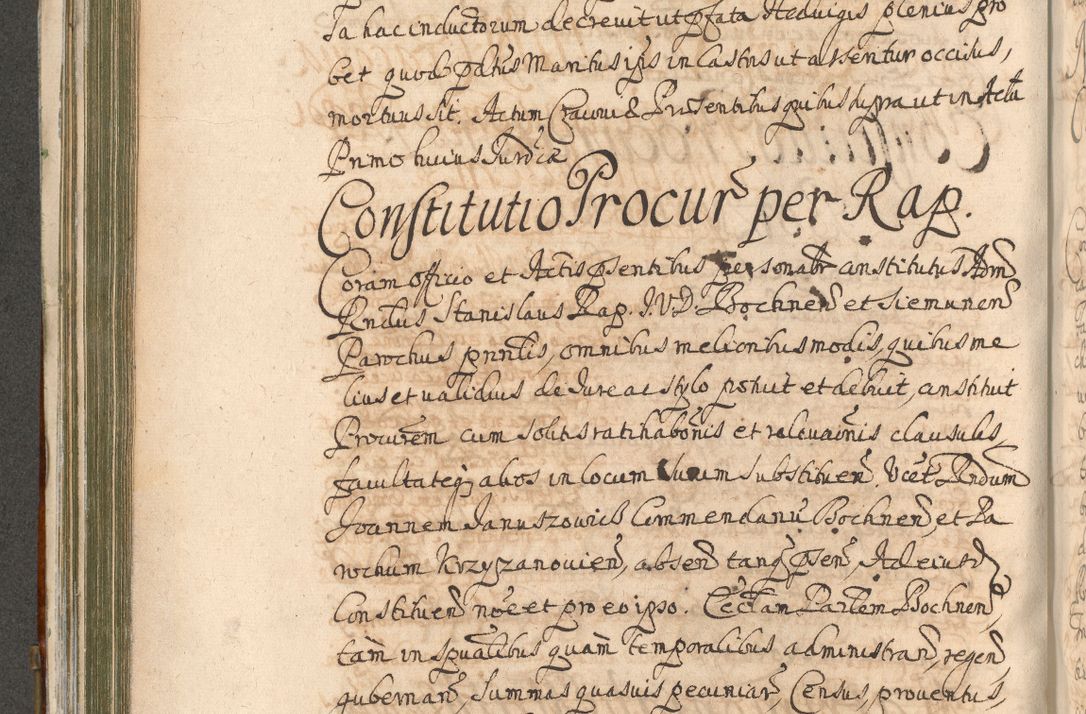 Ta hac inductorum decrevit ut pfata Hedvigis plenius pro
bet quod pdtus Maritus ipsius in Castris ut asseritur occisus,
mortuus sit. Actum Cracoviæ Præsentibus quibus supra ut in Actu
Primo huius Jurdicæ
Constitutio Procur per Rap.
Coram officio et Actis psentibus personalr constitutus Adm
Rndus Stanislaus Rap. J.V.D. Bochnen et Siemunen
Parochus prntis, omnibus melioribus modis, quibus me
lius et validius de Jure ac stylo potuit et debuit, constituit
Procurem cum solitis ratihabonis et relevaonis clausulis,
facultateqz alios in locum suum substituen. Vcet Rndum
Joannem Januszowicz Commendanu Bochnen, et Pa
rochum Krzyzanovien, absen tanqz psen, Ad eiusd
Constituen noe et pro eo ipso. Eccłam Parlem Bochnen
tàm in spualibus quàm temporalibus administran, regen,
gubernan, Summas quasvis pecuniar, Census, proventus,